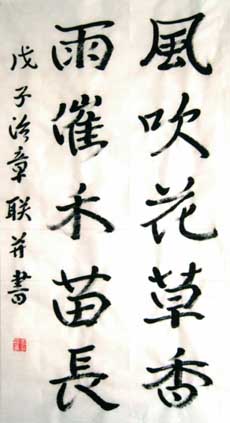 風吹花草香
雨催禾苗長
戊子治章联并書